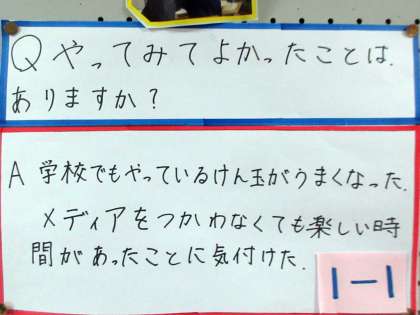 Qやってみてよかったことは、
ありますか？
A 学校でもやっているけん玉がうまくなった。
メディアをつかわなくても楽しい時
間があったことに気付けた。
1-1